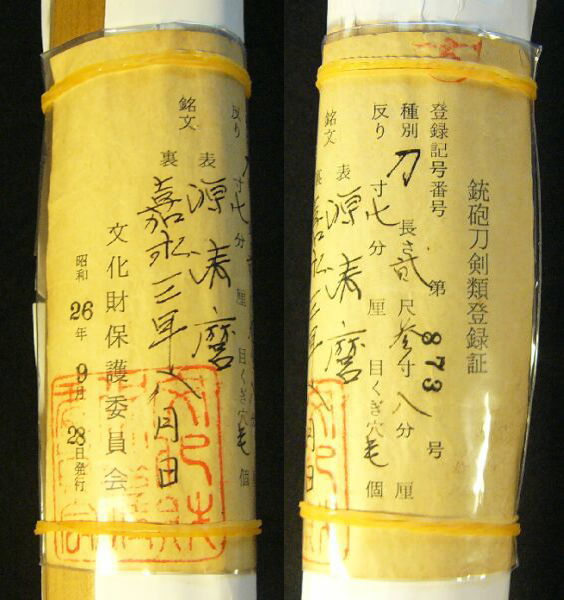 反り 寸七分 厘 目くぎ穴 個
銘文 表 源清麿
裏 嘉永三年八月日
文化財保護委員会
昭和26年9月28日発行
銃砲刀剣類登録証
登録記号番号 第873号
種別 刀 長さ 貳尺参寸八分 厘
反り 寸七分 厘 目くぎ穴 個
銘文 表 源清麿
裏 嘉永三年 月日